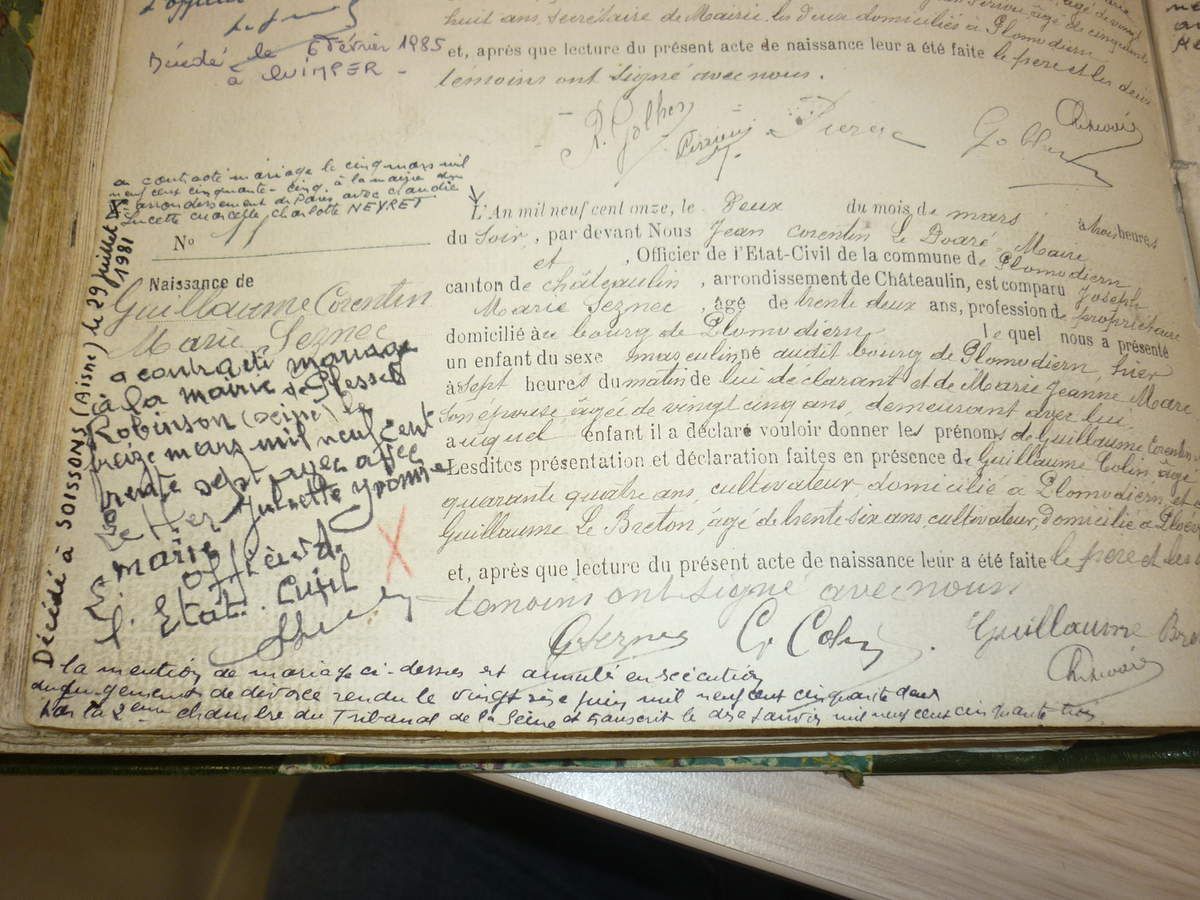 l'officier
Décédé le 6 Février 1985
à QUIMPER -
huit ans, secrétaire de Mairie, les deux domiciliés à Plomodiern
et, après que lecture du présent acte de naissance leur a été faite le père et les deux
témoins ont signé avec nous.
R. Golhen
a contracté mariage le cinq mars mil
neuf cent cinquante-cinq, à la mairie du
arrondissement de Paris avec Claudie
Lucette Marcelle Charlotte NEYRET
N°
Naissance de
Guillaume Corentin
Marie Seznec
a contracté mariage
à la mairie de Plessis
Robinson (Seine) le
treize mars mil neuf cent
trente sept avec
Juliette Yvonne
Marie
Officier de
l'Etat Civil
Décédé à SOISSONS (Aisne) le 29 juillet 1981
L'An mil neuf cent onze, le deux du mois de mars à trois heures
du soir, par devant Nous Jean Corentin Le Doaré Maire
et , Officier de l'Etat-Civil de la commune de Plomodiern
canton de Châteaulin , arrondissement de Châteaulin, est comparu Joseph
Marie Seznec , âgé de trente deux ans, profession de propriétaire
domicilié à ce bourg de Plomodiern le quel nous a présenté
un enfant du sexe masculin né audit bourg de Plomodiern, hier
à sept heures du matin de lui déclarant et de Marie Jeanne Marc
son épouse âgée de vingt cinq ans, demeurant avec lui
auquel enfant il a déclaré vouloir donner les prénoms de Guillaume Corentin
Lesdites présentation et déclaration faites en présence de Guillaume Colin âgé
quarante quatre ans, cultivateur domicilié à Plomodiern et
Guillaume Le Breton, âgé de trente six ans cultivateur, domicilié à
et, après que lecture du présent acte de naissance leur a été faite le père et les
témoins ont signé avec nous
Seznec G. Colin Guillaume
la mention de mariage ci-dessus est annulée en exécution
du jugement de divorce rendu le vingt six juin mil neuf cent cinquante deux
par la 2ème chambre du Tribunal de la Seine et transcrit le janvier mil neuf cent cinquante trois.